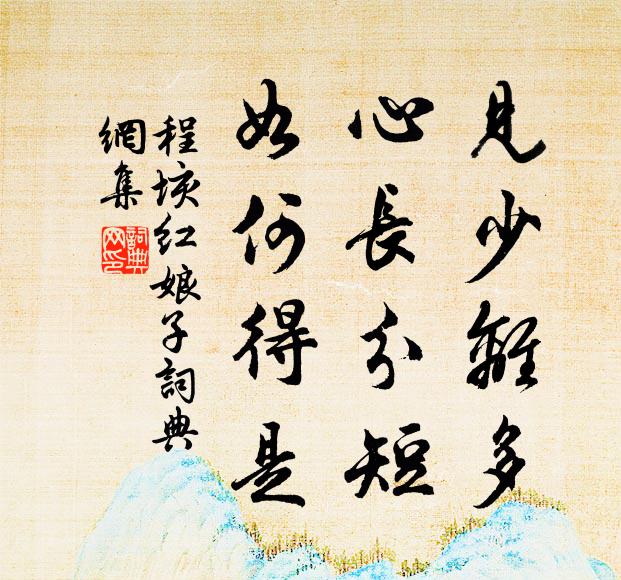 見少離多
心長分短
如何得是
程垓紅娘子詞典
網集
詞典
网印